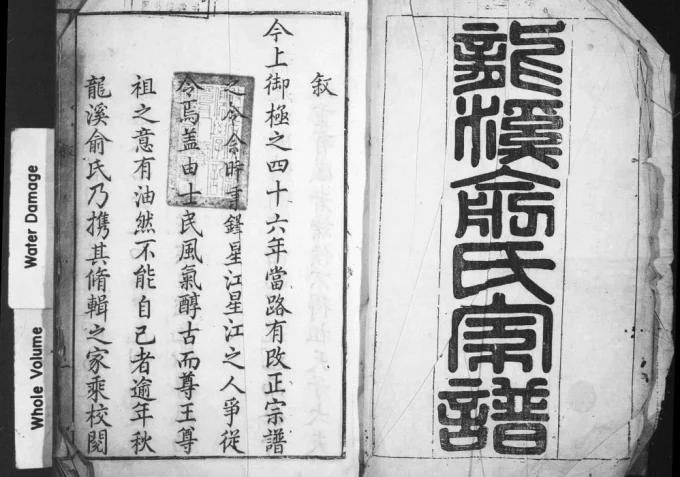 龍溪俞氏宗譜
叙
今上御極之四十六年當路有改正宗譜
之令余時司鐸星江星江之人爭從
令焉盖由士民風氣醇古而尊王尊
祖之意有油然不能自己者逾年秋
龍溪俞氏乃携其脩輯之家乘校閱
Water Damage
Whole Volume